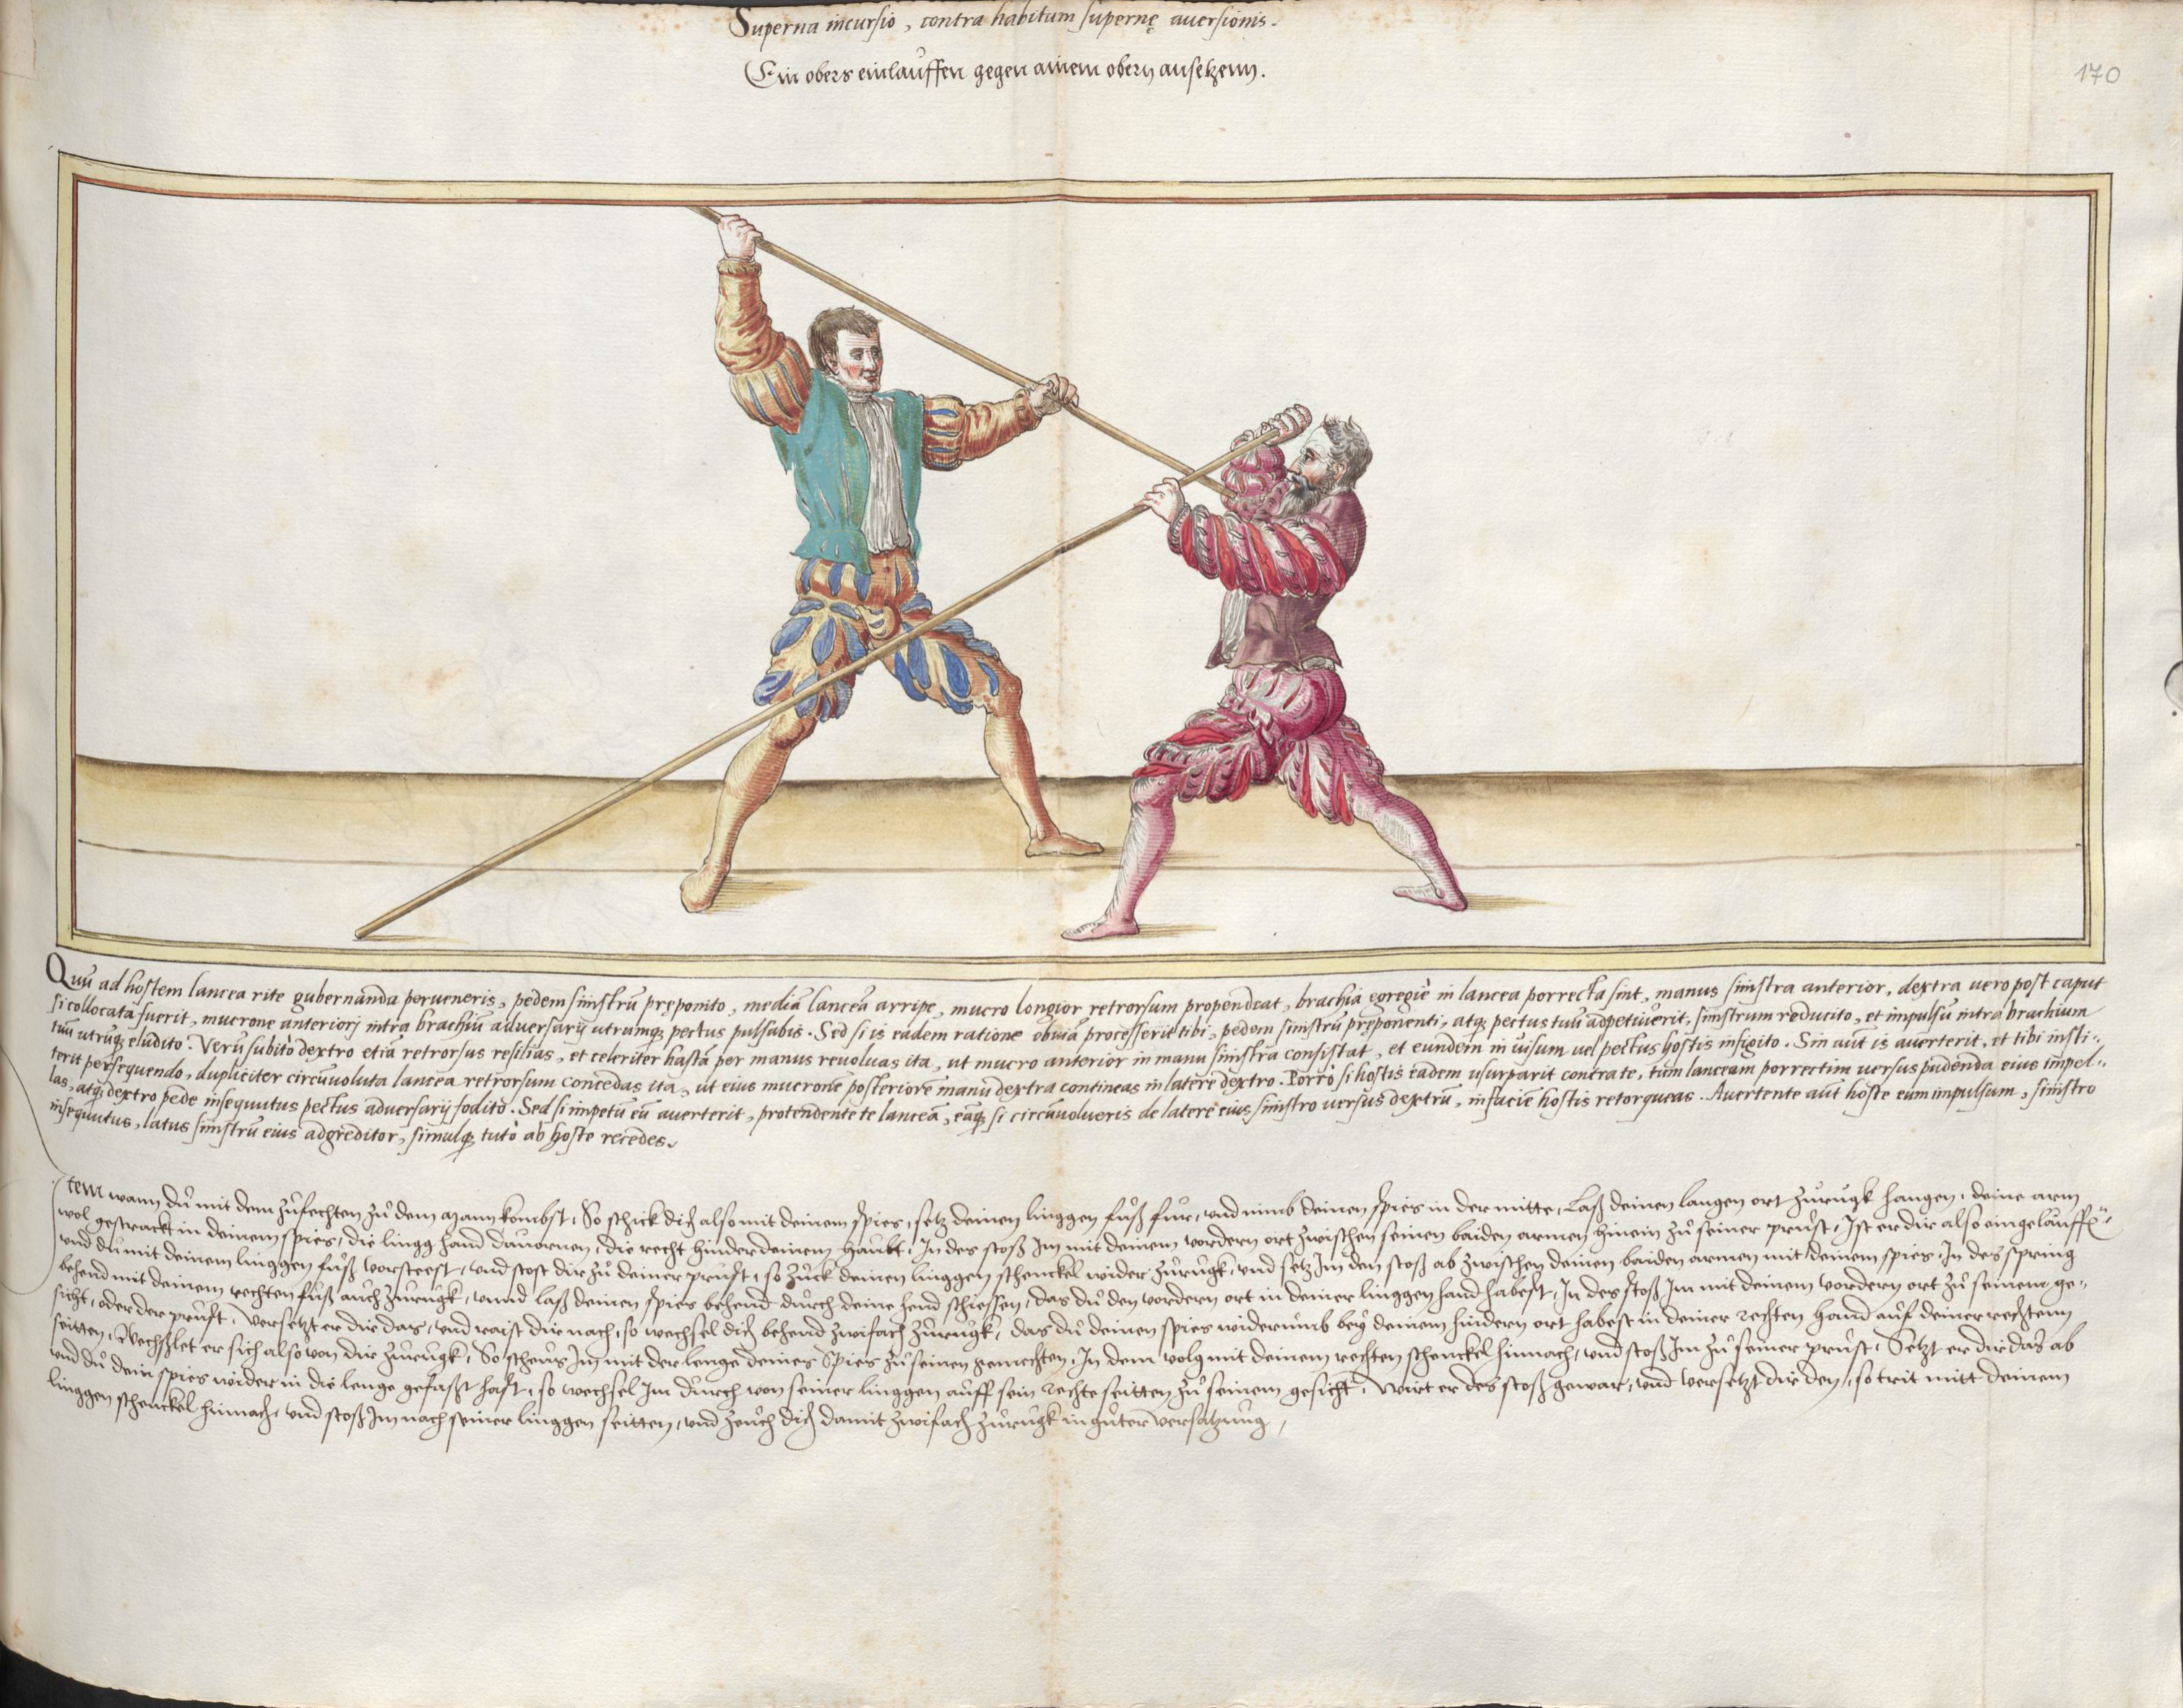 Superna incursio, contra habitum supernę auersionis.
Ein obers einlauffen gegen ainem obern ansetzenn.
170
Quū ad hostem lancea rite gubernanda perueneris, pedem sinistrū prępomito, mediā lanceā arripe, mucro longior retrorsum propendeat, brachia egregiè in lancea porrecta sint, manus sinistra anterior, dextra uero post caput
si collocata fuerit, mucrone anteriorj intra brachiū aduersarij utrumqȝ pectus pulsabis. Sed si is eadem ratione obuiā processerit tibi, pedem sinistrū pręponenti, atqȝ pectus tuū adpetiuerit, sinistrum reducito, et impulsū intra brachium
tuū utrūqȝ eludito. Verū subitò dextro etiā retrorsus resilias, et celeriter hastā per manus reuoluas ita, ut mucro anterior in manu sinistra consistat, et eundem in uisum uel pectus hostis infigito. Sin aūt is auerterit, et tibi insti-
terit persequendo, dupliciter circūuoluta lancea retrorsum concedas ita, ut eius mucronē posteriore manu dextra contineas in latere dextro. Porrò si hostis eadem usurparit contra te, tum lanceam porrectim uersus pudenda eius impel-
las, atqȝ dextro pede insequutus pectus aduersarij fodito. Sed si impetū eū auerterit, protendente te lanceā, eāqȝ si circūuolueris de latere eius sinistro uersus dextrū, in facie hostis retorqueas. Auertente aūt hoste eum impulsum, sinistro
insequutus, latus sinistrū eius adgreditor, simulqȝ tutò ab hoste recedes.
Item wann du mit dem zufechten zu dem mann kombst, So schick dich also mit deinem spies, setz deinen linggen fuß fur, und nimb deinen spies in der mitte, Laß deinen langen ort zurugk hangen, deine arm
wol gestrackt in deinem spies, die lingg hand dauornen, die recht hinder deinem haubt, In des stoß Im mit deinem vordern ort zwischen seinen baiden armen hinein zu seiner prust, Ist er dir also eingelauffē,
und du mit deinem linggen fuß vorsteest, und stost dir zu deiner prust, so zuck deinen linggen schenckel wider zurugk, und setz Im den stoß ab zwischen deinen baiden armen mit deinem spies, In des spring
behend mit deinem rechten fuß auch zurugk, unnd laß deinen spies behend durch deine hend schiessen, das du den vordern ort in deiner linggen hand habest, In des stoß Im mit deinem vordern ort zu seinem ge-
sicht, oder der prust, Versetzt er dir das, und raist dir nach, so wechsel dich behend zwifach zurugk, das du deinen spies widerumb bey deinem hindern ort habest in deiner rechten hand auf deiner rechtenn
seitten, Wechslet er sich also von dir zurugk, So scheus Im mit der lenge deines Spies zu seinen gemechten, In dem volg mit deinem rechten schenckel hinnach, und stoß Im zu seiner prust, Setzt er dir das ab
und du dein spies wider in die lenge gefaßt hast, so wechsel Im durch von seiner linggen auff sein rechte seitten zu seinem gesicht, Wirt er des stoß gewar, und versetzt dir den, so trit mitt deinem
linggen schenckel hinnach, und stoß Im nach seiner linggen seitten, und zeuch dich damit zwifach zurugk in guter versatzung,